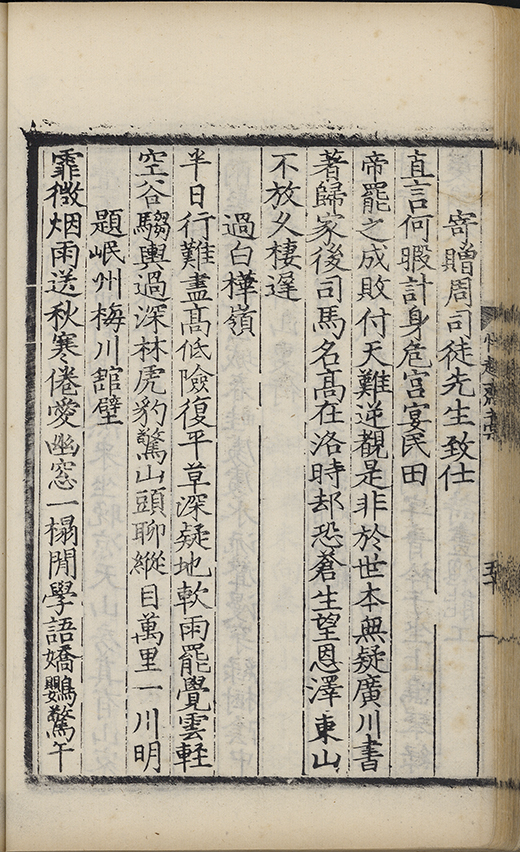 寄贈周司徒先生致仕
直言何暇計身危宫宴民田
帝罷之成敗付天難逆覩是非於世本無疑廣川書
著歸家後司馬名高在洛時却恐蒼生望恩澤東山
不放久棲遲
過白樺嶺
半日行難盡高低險復平草深疑地軟雨罷覺雲軽
空谷騶輿過深林虎豹驚山頭聊縱目萬里一川明
題岷州梅川舘壁
霏微烟雨送秋寒倦愛幽窓一榻閒學語嬌鸚驚午